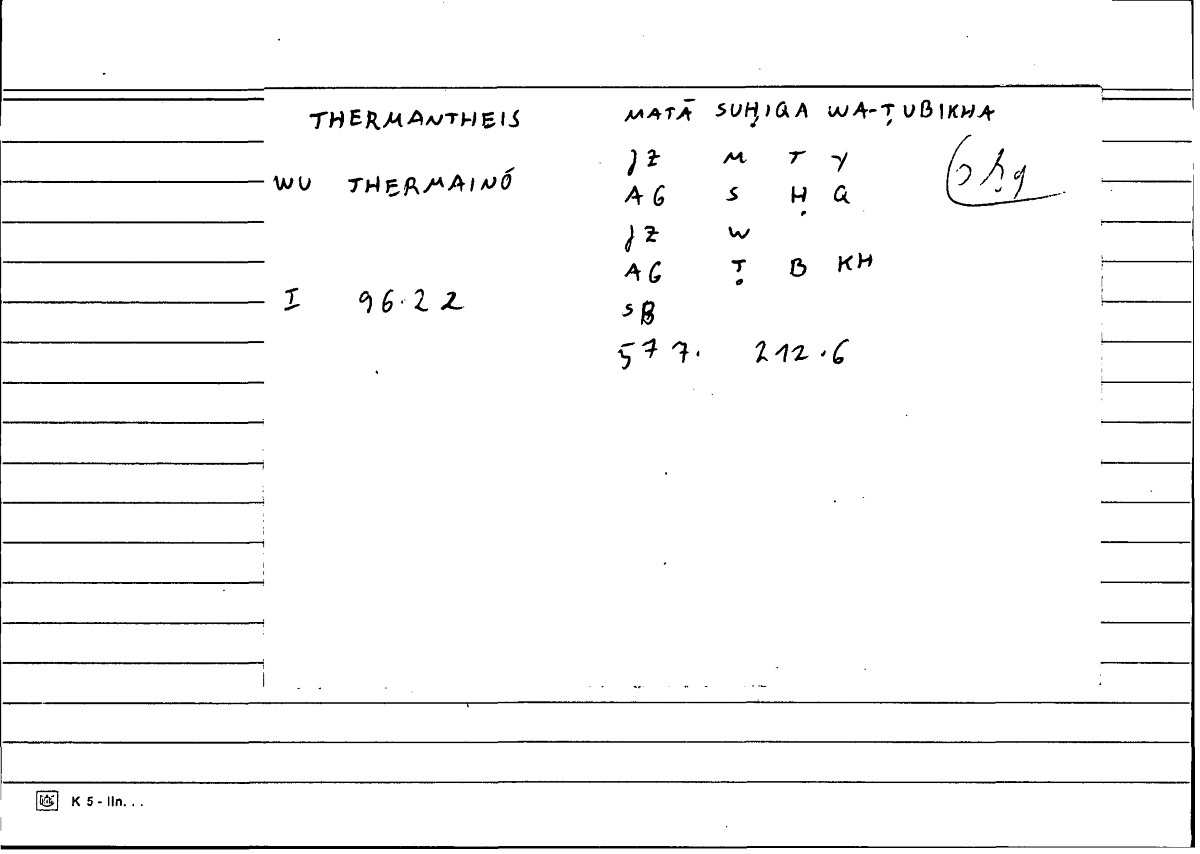 THERMANTHEIS
WU THERMAINŌ
I 96.22
MATĀ SUḤIQA WA-ṬUBIKHA
JZ M T Y
AG S Ḥ Q
JZ W
AG Ṭ B KH
SB
577. 212.6
sḥq
K 5 - IIn. . .